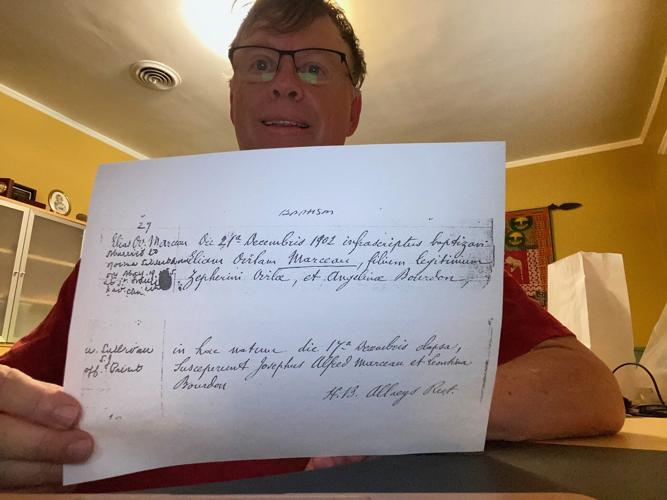 BAPTISM
27
Elias Ov. Marceau
Married to
Norma
on May
Die 21a Decembris 1902 infrascriptus baptizavi
Eliam Ovilam Marceau, filium legitimum
Zepherini Ovilæ, et Angelinæ Bourdon,
W. Sullivan
S.J.
off.
in hac natum die 17a Decembris elapsa,
Susceperunt Josephus Alfred Marceau et Leontina
Bourdon
H.B. Allaeys Rect.